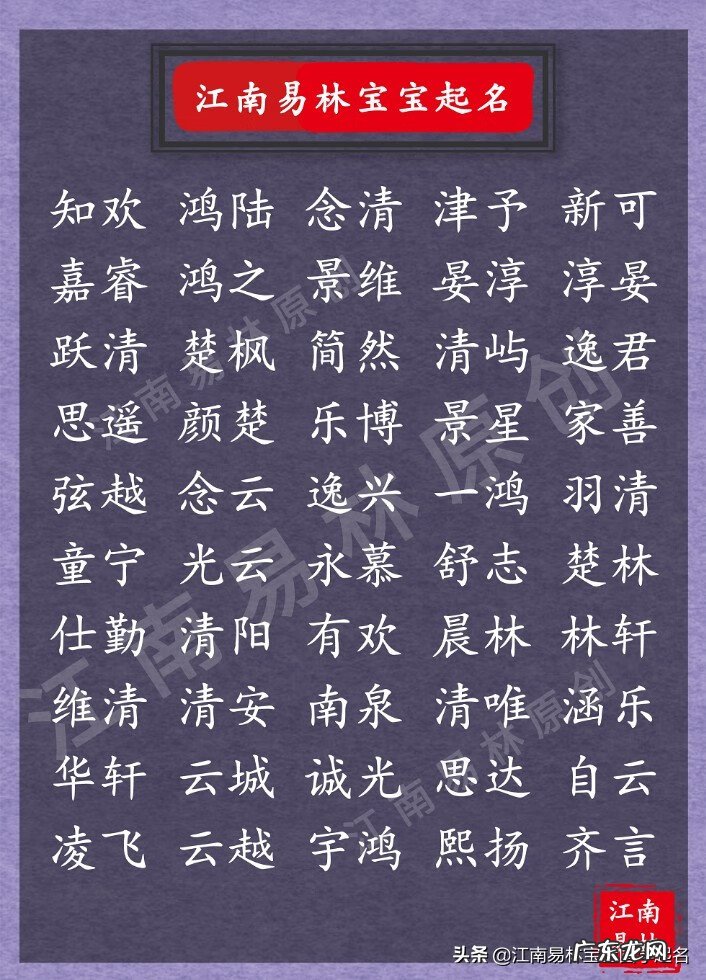 江南易林宝宝起名
知欢 鸿陆 念清 津予 新可
嘉睿 鸿之 景维 晏淳 淳晏
跃清 楚枫 简然 清屿 逸君
思遥 颜楚 乐博 景星 家善
弦越 念云 逸兴 一鸿 羽清
童宁 光云 永慕 舒志 楚林
仕勤 清阳 有欢 晨林 林轩
维清 清安 南泉 清唯 涵乐
华轩 云城 诚光 思达 自云
凌飞 云越 宇鸿 熙扬 齐言
江南易林原创
江南易林原创
江南易林原创
江南
广东龙网
头条 @江南易林宝宝起名